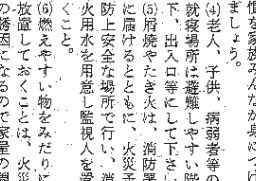 慣を家族みんなが身につけ
ましょう。
(4)老人、子供、病弱者等の
就寝場所は避難しやすい階
下、出入口等にして下さい
(5)府焼やたき火は、消防署
に届けるとともに、火災予
防上安全な場所で行い、消
火用水を用意し監視人を置
くこと。
(6)燃えやすい物をみだりに
放置しておくことは、火災
の誘因になるので家屋の周